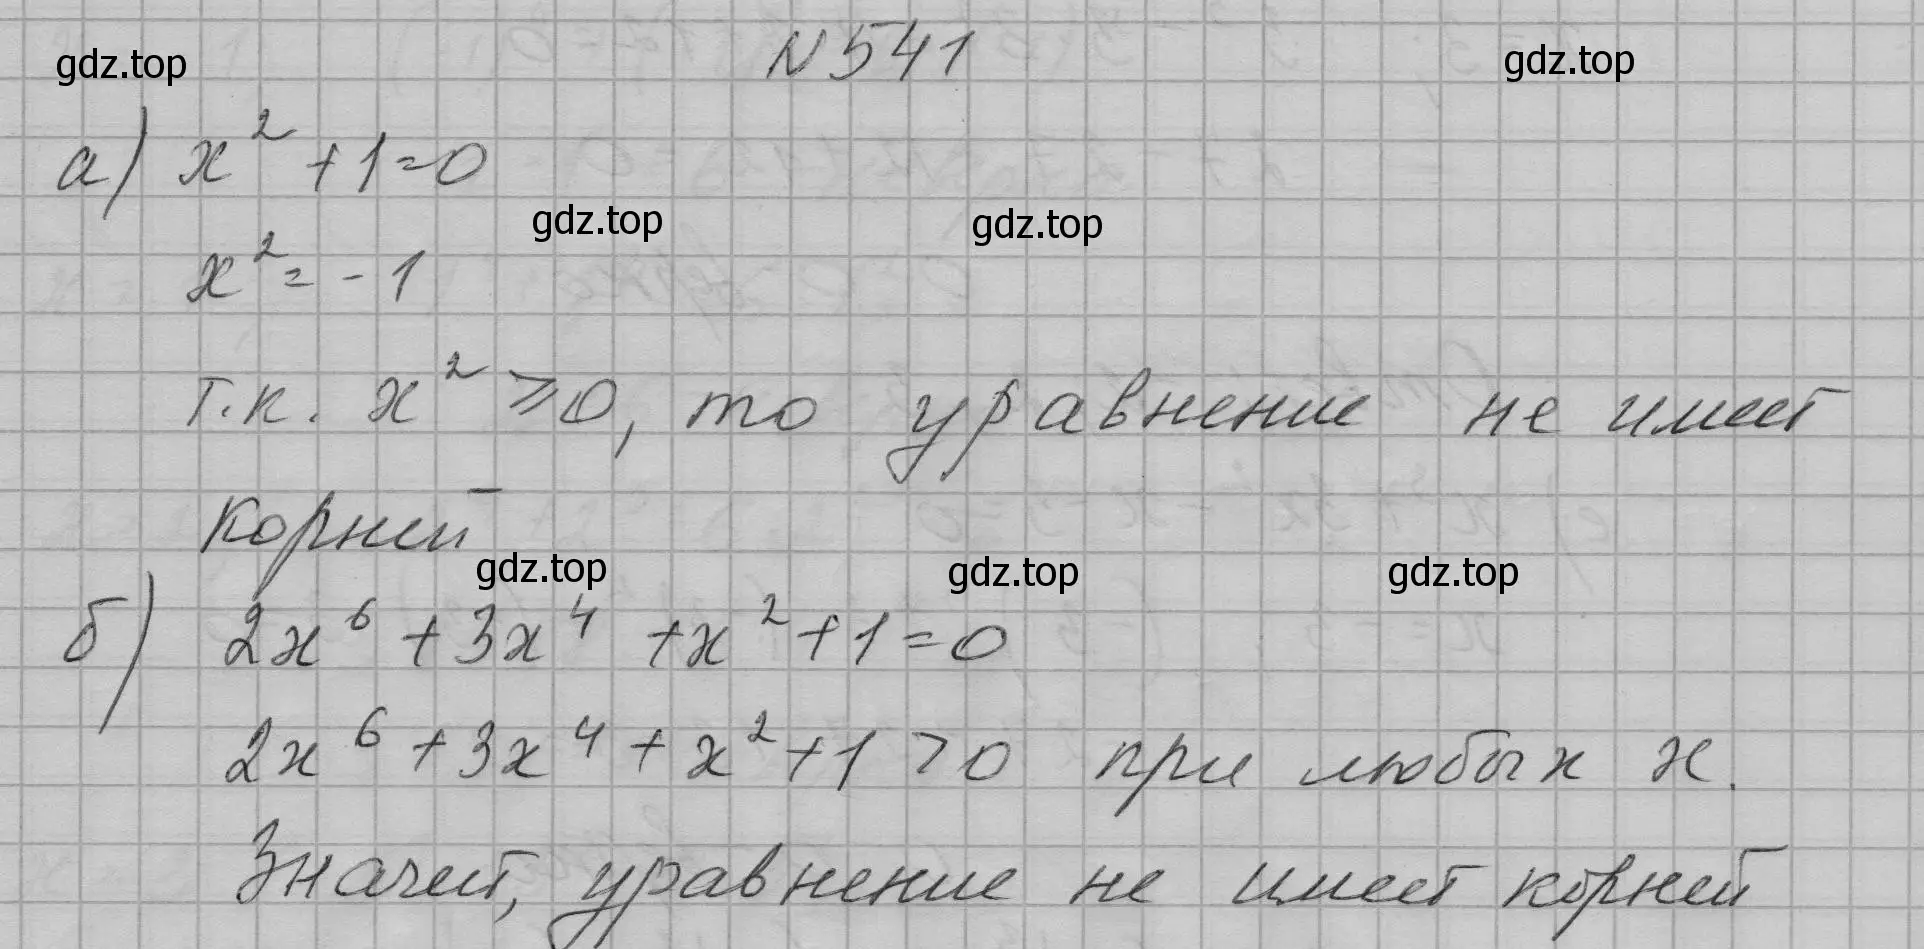 N 541
gdz.top gdz.top
а) x² + 1 = 0
gdz.top gdz.top
x² = - 1
т.к. x² ⩾ 0, то уравнение не имеет
корней
gdz.top gdz.top gdz.top
б) 2x⁶ + 3x⁴ + x² + 1 = 0
2x⁶ + 3x⁴ + x² + 1 > 0 при любых x.
Значит, уравнение не имеет корней